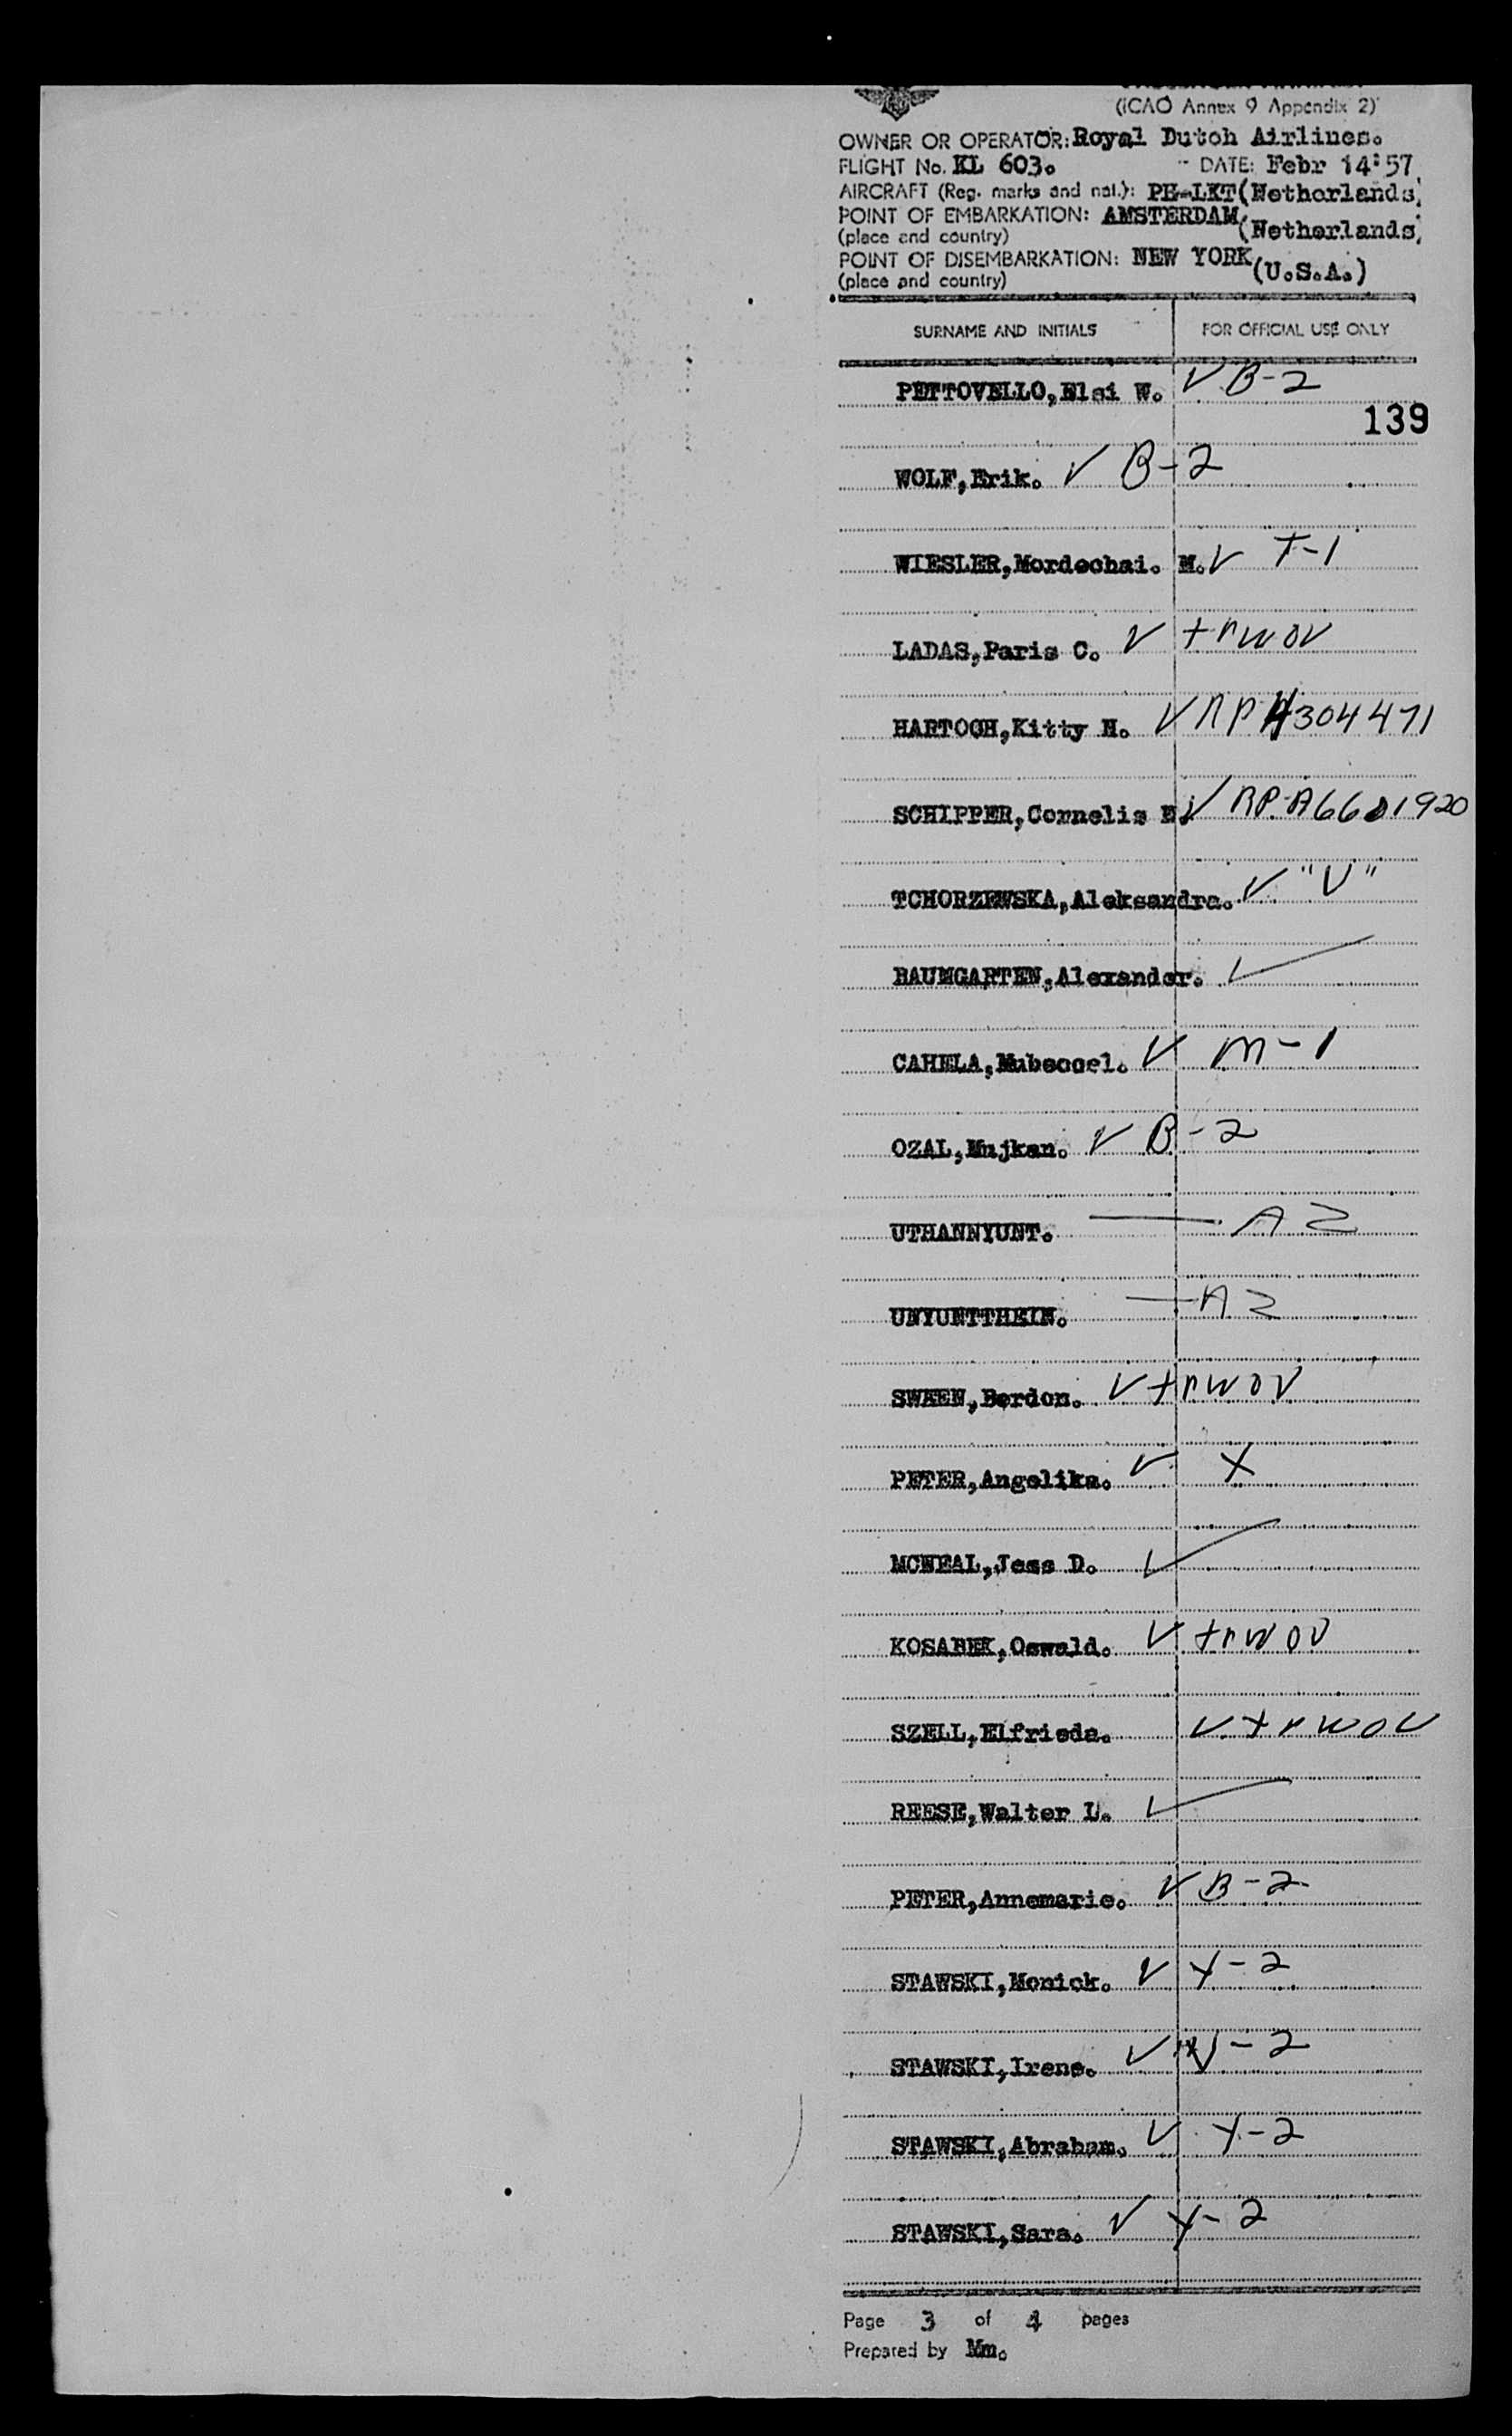 (ICAO Annex 9 Appendix 2)
OWNER OR OPERATOR: Royal Dutch Airlines.
FLIGHT No. KL 603. DATE: Febr 14'57
AIRCRAFT (Reg. marks and nat.): PH-LKT (Netherlands)
POINT OF EMBARKATION: AMSTERDAM (Netherlands)
(place and country)
POINT OF DISEMBARKATION: NEW YORK (U.S.A.)
(place and country)
SURNAME AND INITIALS FOR OFFICIAL USE ONLY
PETTOVELLO, Elsi W. ✓ B-2
139
WOLF, Erik. ✓ B-2
WIESLER, Mordechai. M. ✓ T-1
LADAS, Paris C. ✓ trwov
HARTOGH, Kitty H. ✓ RP 304471
SCHIPPER, Cornelis E. ✓ RP-A6681920
TCHORZEWSKA, Aleksandra. ✓ "V"
BAUMGARTEN, Alexander. ✓
CAHELA, Mubeccel. ✓ M-1
OZAL, Mujkan. ✓ B-2
UTHANNYUNT. — A2
UNYUNTTHEIN. — A2
SWEEN, Berdon. ✓ trwov
PETER, Angelika. ✓ X
MCNEAL, Jess D. ✓
KOSABEK, Oswald. ✓ trwov
SZELL, Elfrieda. ✓ trwov
REESE, Walter L. ✓
PETER, Annemarie. ✓ B-2
STAWSKI, Monick. ✓ Y-2
STAWSKI, Irene. ✓ -2
STAWSKI, Abraham. ✓ Y-2
STAWSKI, Sara. ✓ Y-2
Page 3 of 4 pages
Prepared by Mm.